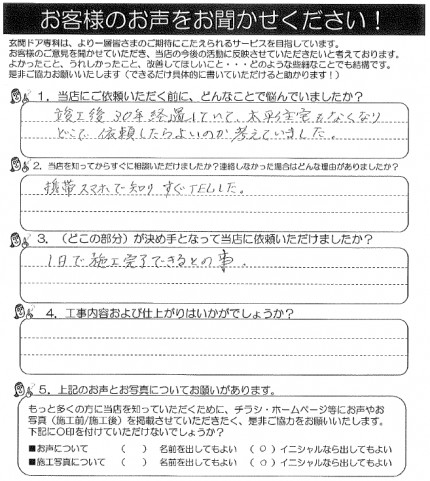 お客様のお声をお聞かせください！
玄関ドア専科は、より一層皆さまのご期待にこたえられるサービスを目指しています。
お客様のご意見を聞かせていただき、当店の今後の活動に反映させていただきたいと考えております。
よかったこと、うれしかったこと、改善してほしいこと・・・どのような些細なことでも結構です。
是非ご協力お願いいたします（できるだけ具体的に書いていただけると助かります！）
1．当店にご依頼いただく前に、どんなことで悩んでいましたか？
竣工後30年経過していて、太平住宅もなくなり
どこで依頼したらよいのか考えていました。
2．当店を知ってからすぐに相談いただけましたか？連絡しなかった場合はどんな理由がありましたか？
携帯スマホで知りすぐTELした。
3．（どこの部分）が決め手となって当店に依頼いただけましたか？
1日で施工完了できるとの事。
4．工事内容および仕上がりはいかがでしょうか？
5．上記のお声とお写真についてお願いがあります。
もっと多くの方に当店を知っていただくために、チラシ・ホームページ等にお声やお
写真（施工前/施工後）を掲載させていただきたく、是非ご協力をお願いいたします。
下記に〇印を付けていただけないでしょうか？
■お声について （ ） 名前を出してもよい （○）イニシャルなら出してもよい
■施工写真について （ ） 名前を出してもよい （○）イニシャルなら出してもよい